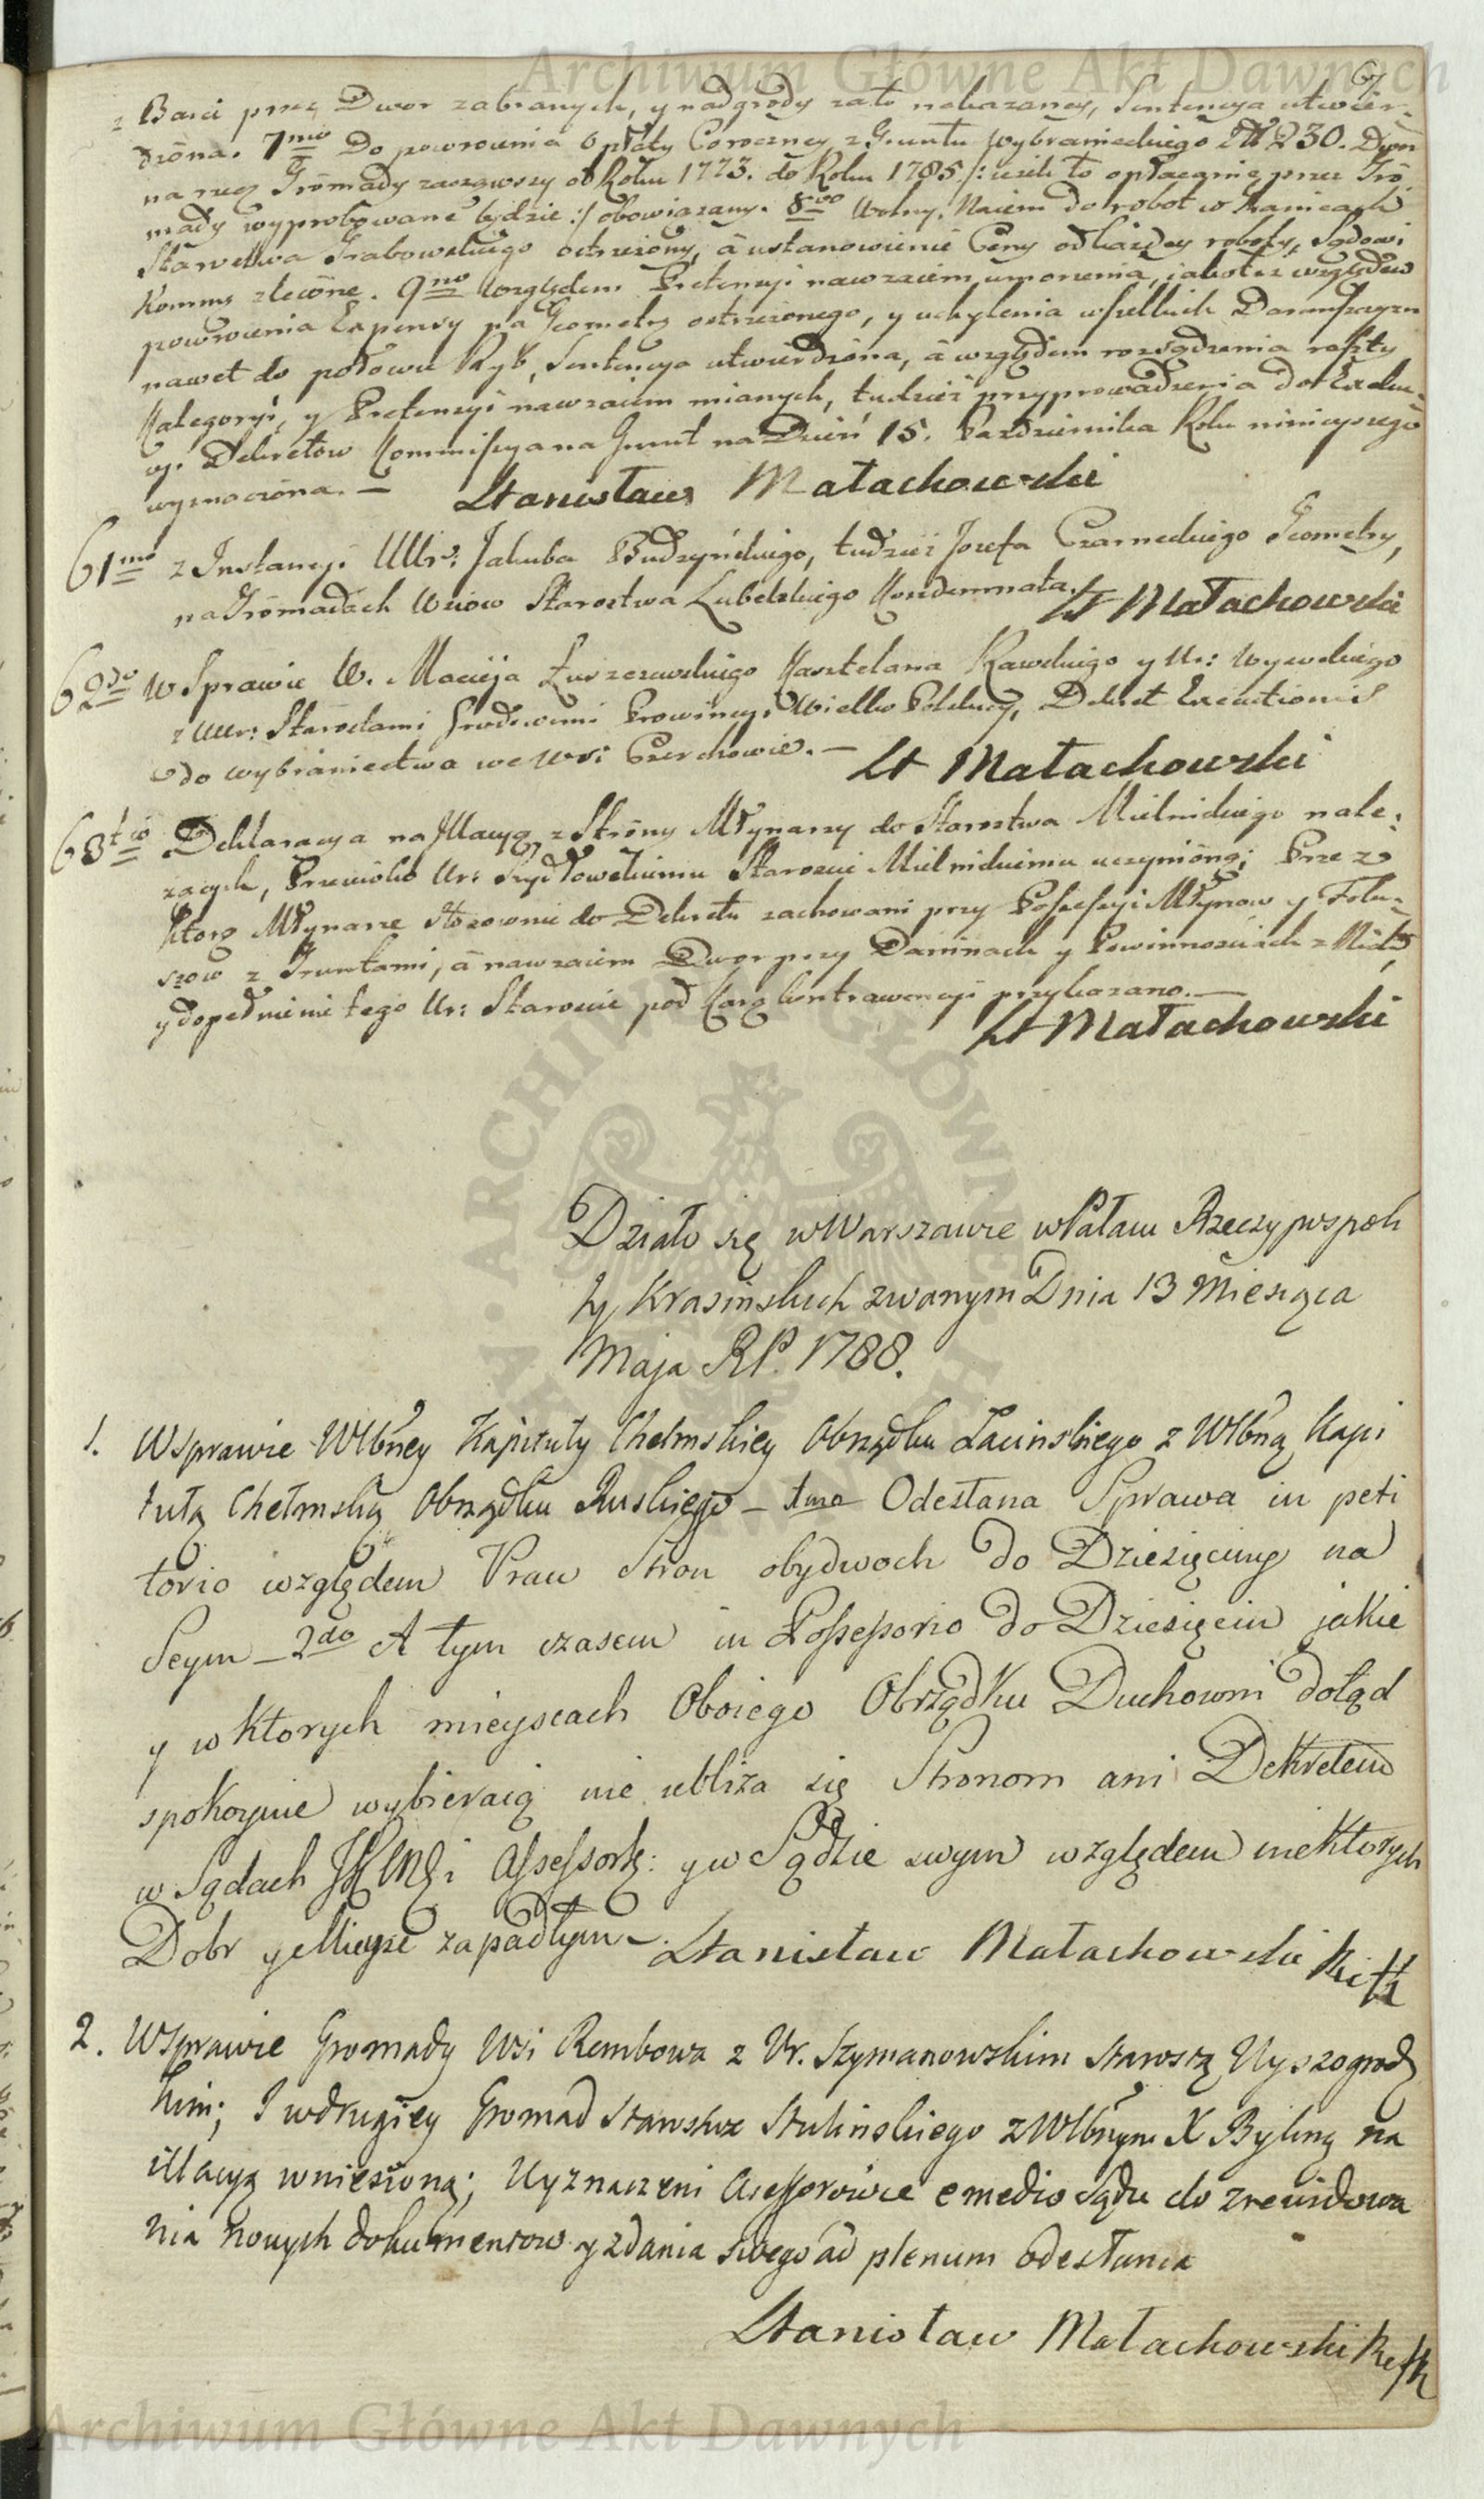 Archiwum Główne Akt Dawnych
67
z Barci przez Dwor zabranych, y nadgrody zato nakazaney, Sentencya utwier-
dzona. 7mo Do powrocenia opłaty Coroczney z Gruntu Wybranieckiego zł 230. Dwor
na rzecz Gromady zacząwszy od Roku 1773. do Roku 1785 /: ieżeli to opłacanie przez Gro
mady wyprobowane będzie :/ obowiązany. 8vo Wolny Naiem do robot w Granicach
Starostwa Grabowskiego ostrzeżony, a ustanowienie Ceny od każdey roboty, Sądowi
Komms zlecone. 9no Względem Pretensyi nawzaiem umorzenia, iako też względem
powrocenia Expensy na Geometrę ostrzeżonego, y uchylenia wszelkich Daremszczyzn
nawet do połowu Ryb, Sentencya utwierdzona, a względem rozsądzenia reszty
Kategoryi, y Pretensyi nawzaiem mianych, tudzież przyprowadzenia do Exeku-
cyi Dekretow Kommissya na Grunt na Dzień 15. Pazdziernika Roku ninieyszego
wyznaczona. — Stanisław Małachowski
61mo z Instancyi Uur: Jakuba Budzyńskiego, tudzież Jozefa Czarneckiego Geometry,
na Gromadach Wsiow Starostwa Lubelskiego Kondemnata. St Małachowski
62do W Sprawie W. Macieja Łuszczewskiego Kasztelana Rawskiego y Ur: Wyewskiego
z Uur: Starostami Grodowemi Prowincyi Wielko Polskiey, Dekret Executionis
do wybraniectwa we Wsi Czerchowie. — St Małachowski
63tio Deklaracya na Illacyą z Strony Młynarzy do Starostwa Mielnickiego nale-
żących, Przeciwko Ur: Szydłowskiemu Staroscie Mielnickiemu uczynioną; Przez
ktorą Młynarze stosownie do Dekretu zachowani przy Possessyi Młynow y Folu-
szow z Gruntami, a nawzaiem Dwor przy Daninach y Powinnosciach z Nich,
y dopełnienie tego Ur: Staroscie pod Karą Kontrawencyi przykazano. —
St Małachowski
Działo się w Warszawie w Pałacu Rzeczypospoli
ty Krasinskich zwanym Dnia 13 Miesiąca
Maja RP. 1788.
1. W sprawie Wlbney Kapituły Chełmskiey Obrządku Łacinskiego z Wlbną Kapi
tułą Chełmską Obrządku Ruskiego — 1mo Odesłana Sprawa in peti
torio względem Praw Stron obydwoch do Dziesięciny na
Seym — 2do A tym czasem in Possessorio do Dziesięcin jakie
y w ktorych mieyscach Oboiego Obrządku Duchowni dotąd
spokoynie wybieraią nie ubliża się Stronom ani Dekretem
w Sądach Assessork: y w Sądzie swym względem niektorych
Dobr y Mieysc zapadłym —. Stanisław Małachowski
2. W Sprawie Gromady Wsi Rembowa z Ur. Szymanowskim Starostą Wyszogrodz
kim; I w drugiey Gromad Starostwa Stulińskiego z Wlbnym X Byliną na
illacyą wniesioną; Wyznaczeni Assessorowie e medio Sądu do zrewidowa
nia nowych dokumentow y zdania swego ad plenum Odesłania
Stanisław Małachowski
Archiwum Główne Akt Dawnych